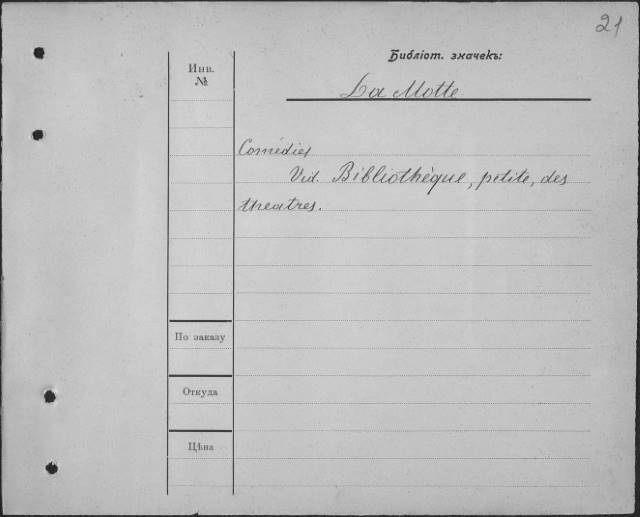 21
Библіот. значекъ:
Инв.
№
La Motte
Comédies
Vid. Bibliothèque, petite, des
theatres.
По заказу
Откуда
Цѣна